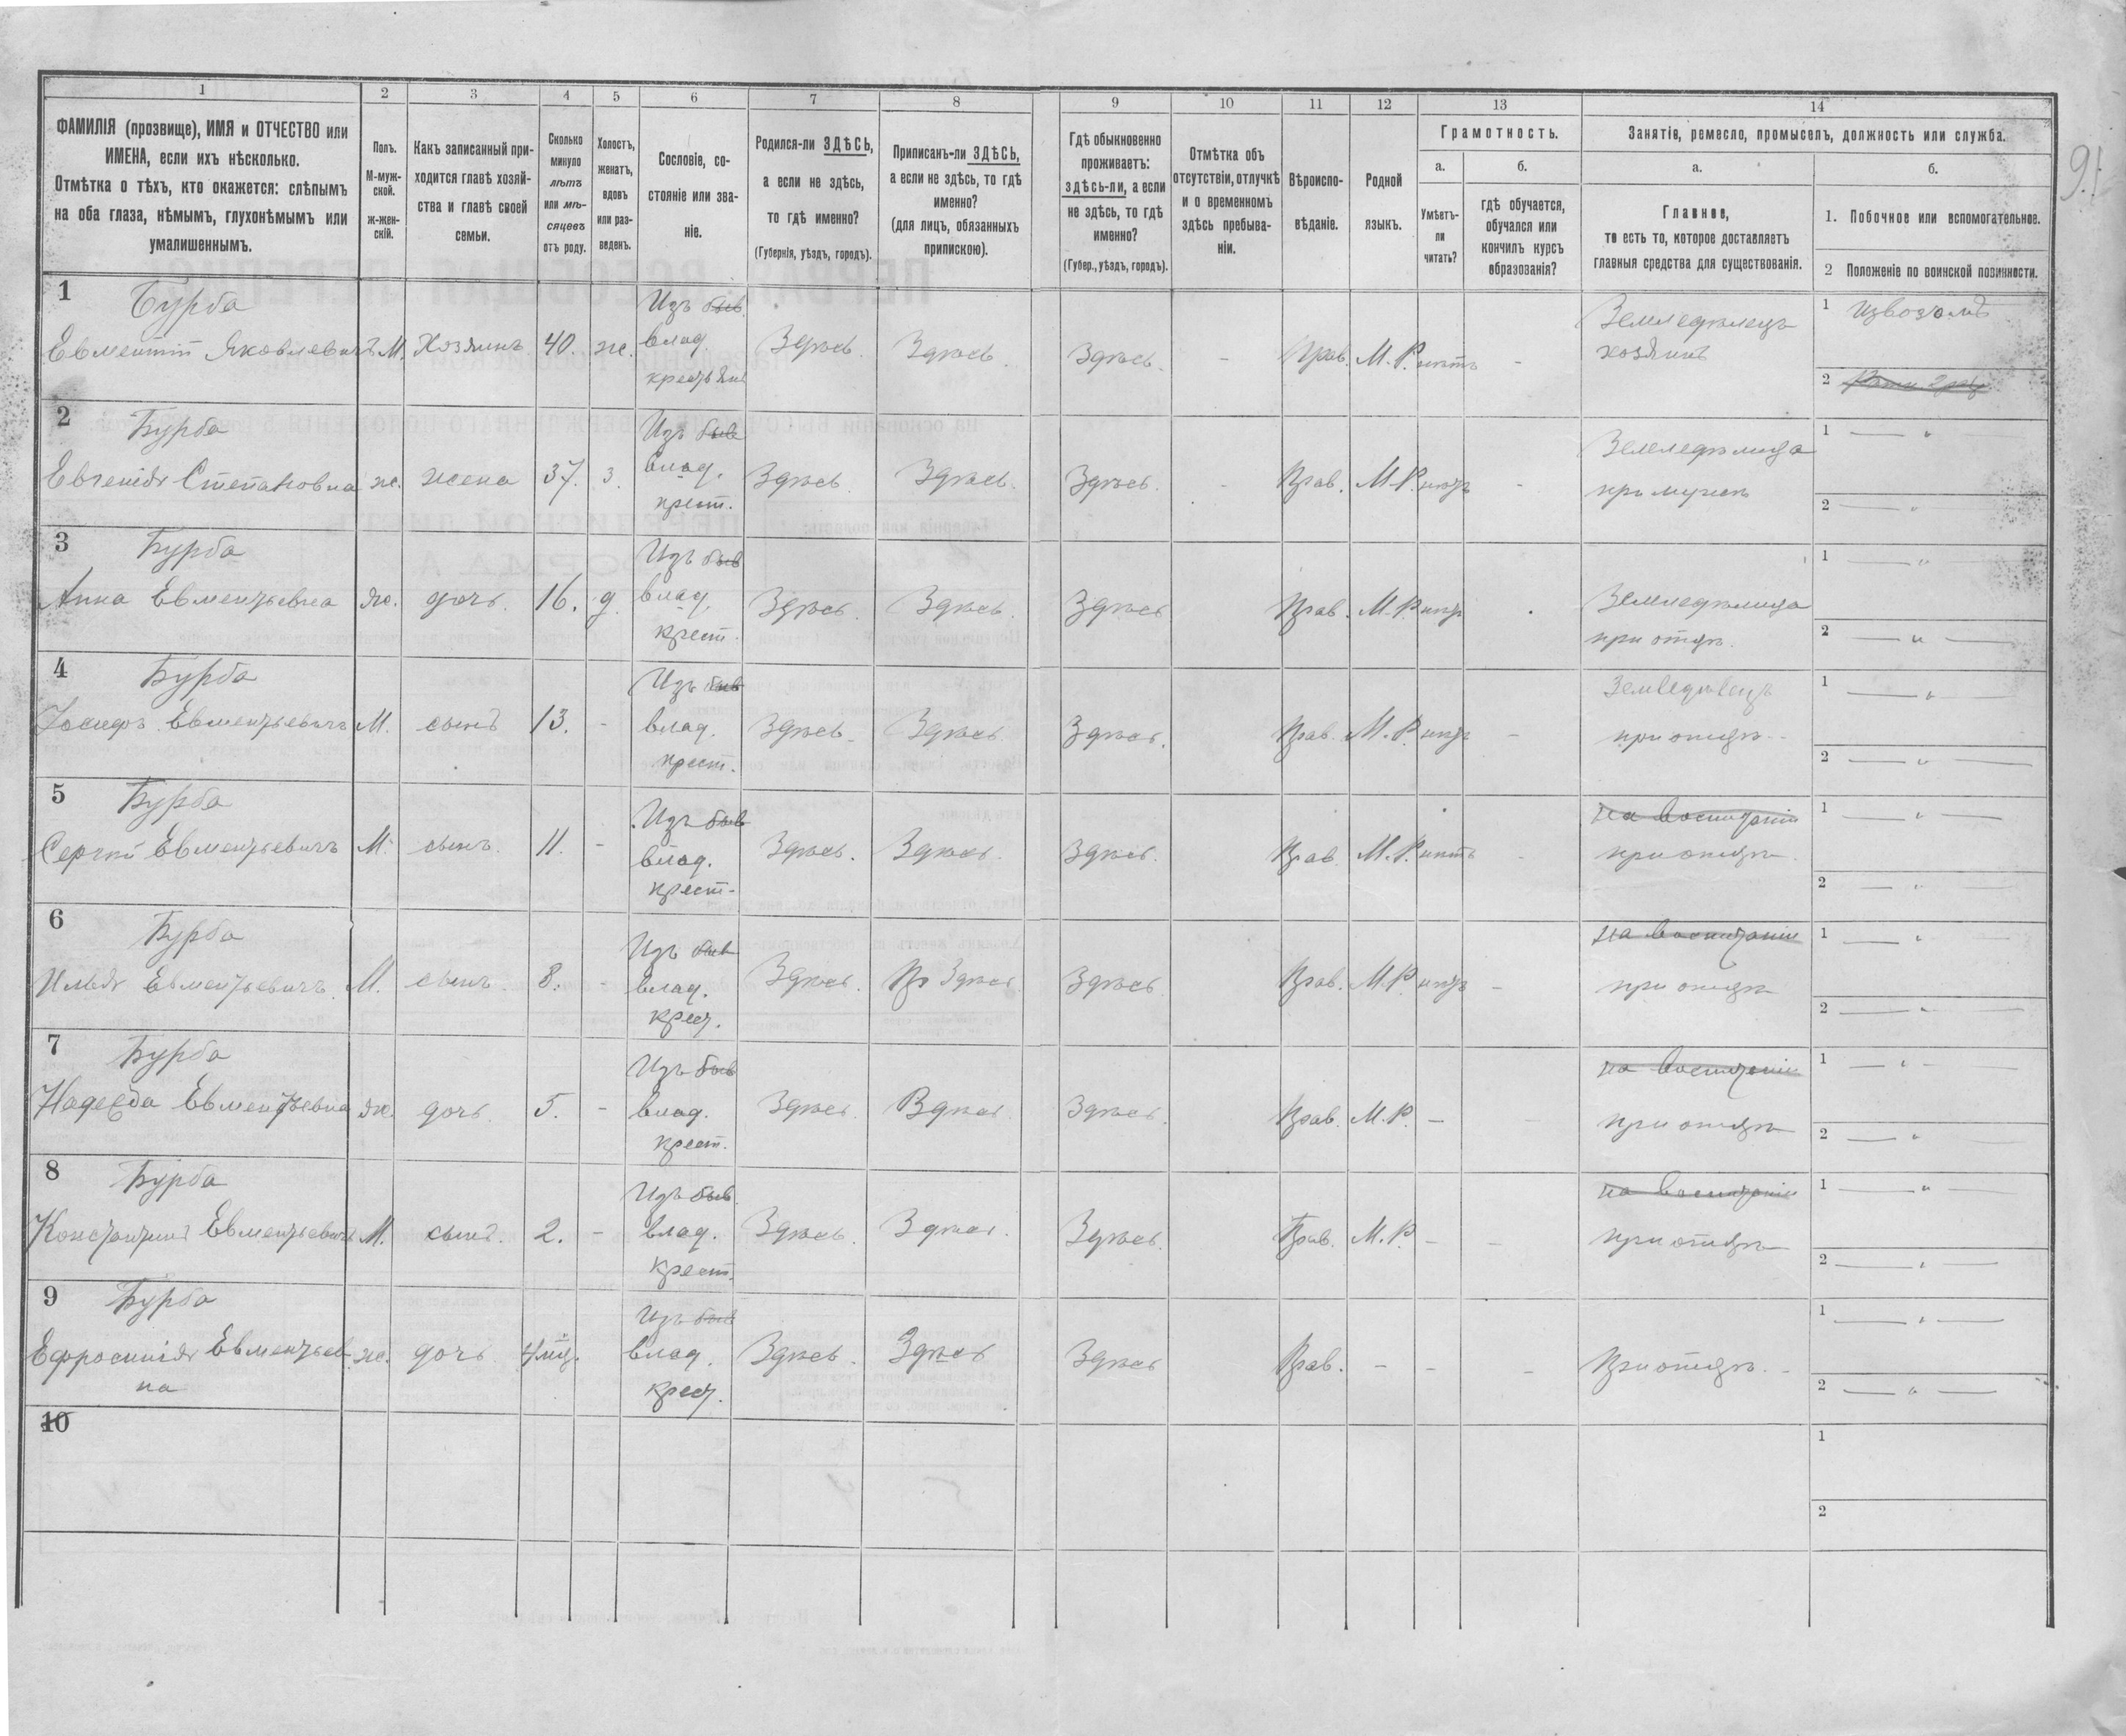 1 2 3 4 5 6 7 8 9 10 11 12 13 14
ФАМИЛІЯ (прозвище), ИМЯ и ОТЧЕСТВО или
ИМЕНА, если ихъ нѣсколько.
Отмѣтка о тѣхъ, кто окажется: слѣпымъ
на оба глаза, нѣмымъ, глухонѣмымъ или
умалишеннымъ.
Полъ.
М-муж-
ской.
ж-жен-
скій.
Какъ записанный при-
ходится главѣ хозяй-
ства и главѣ своей
семьи.
Сколько
минуло
лѣтъ
или мѣ-
сяцевъ
отъ роду.
Холостъ,
женатъ,
вдовъ
или раз-
веденъ.
Сословіе, со-
стояніе или зва-
ніе.
Родился-ли ЗДѢСЬ,
а если не здѣсь,
то гдѣ именно?
(Губернія, уѣздъ, городъ).
Приписанъ-ли ЗДѢСЬ,
а если не здѣсь, то гдѣ
именно?
(для лицъ, обязанныхъ
припискою).
Гдѣ обыкновенно
проживаетъ:
здѣсь-ли, а если
не здѣсь, то гдѣ
именно?
(Губер., уѣздъ, городъ).
Отмѣтка объ
отсутствіи, отлучкѣ
и о временномъ
здѣсь пребыва-
ніи.
Вѣроиспо-
вѣданіе.
Родной
языкъ.
Грамотность.
а.
Умѣетъ-
ли
читать?
б.
гдѣ обучается,
обучался или
кончилъ курсъ
образованія?
Занятіе, ремесло, промыселъ, должность или служба.
а.
Главное,
то есть то, которое доставляетъ
главныя средства для существованія.
б.
1. Побочное или вспомогательное.
2 Положеніе по воинской повинности.
91
1 Бурба Изъ быв. Земледѣлецъ 1 Извозомъ
Евментій Яковлевичъ М. Хозяинъ 40. ж. влад. Здѣсь. Здѣсь. Здѣсь. - Прав. М.Р. нѣтъ - хозяинъ
крестьянъ 2
2 Бурба Изъ быв Земледѣлица 1 — " —
Евгенія Степановна ж. жена 37. з. влад. Здѣсь. Здѣсь. Здѣсь. - Прав. М.Р. нѣтъ - при мужѣ
крест. 2 — " —
3 Бурба Изъ быв 1 — " —
Анна Евментьевна ж. дочь. 16. д. влад. Здѣсь. Здѣсь. Здѣсь Прав. М.Р. нѣтъ Земледѣлица
крест. при отцѣ. 2 — " —
4 Бурба Изъ быв Земледѣлецъ 1 — " —
Іосифъ Евментьевичъ М. сынъ 13. - влад. Здѣсь. Здѣсь Здѣсь. Прав. М.Р. нѣтъ - при отцѣ
крест. 2 — " —
5 Бурба Изъ быв на воспитаніи 1 — " —
Сергій Евментьевичъ М. сынъ. 11. - влад. Здѣсь. Здѣсь. Здѣсь. Прав. М.Р. нѣтъ - при отцѣ
крест. 2 — " —
6 Бурба Изъ быв на воспитаніи 1 — " —
Илья Евментьевичъ. М. сынъ. 8. - влад. Здѣсь. Здѣсь. Здѣсь Прав. М.Р. нѣтъ - при отцѣ
крест. 2 — " —
7 Бурба Изъ быв на воспитаніи 1 — " —
Надежда Евментьевна ж. дочь. 5. - влад. Здѣсь. Здѣсь. Здѣсь. Прав. М.Р. - - при отцѣ
крест. 2 — " —
8 Бурба Изъ быв. на воспитаніи 1 — " —
Константинъ Евментьевичъ М. сынъ. 2. - влад. Здѣсь. Здѣсь. Здѣсь. Прав. М.Р. - - при отцѣ
крест. 2 — " —
9 Бурба Изъ быв 1 — " —
Ефросинія Евментьев ж. дочь 4 мѣс. влад. Здѣсь. Здѣсь Здѣсь Прав. - - - При отцѣ. -
на крест. 2 — " —
10 1
2